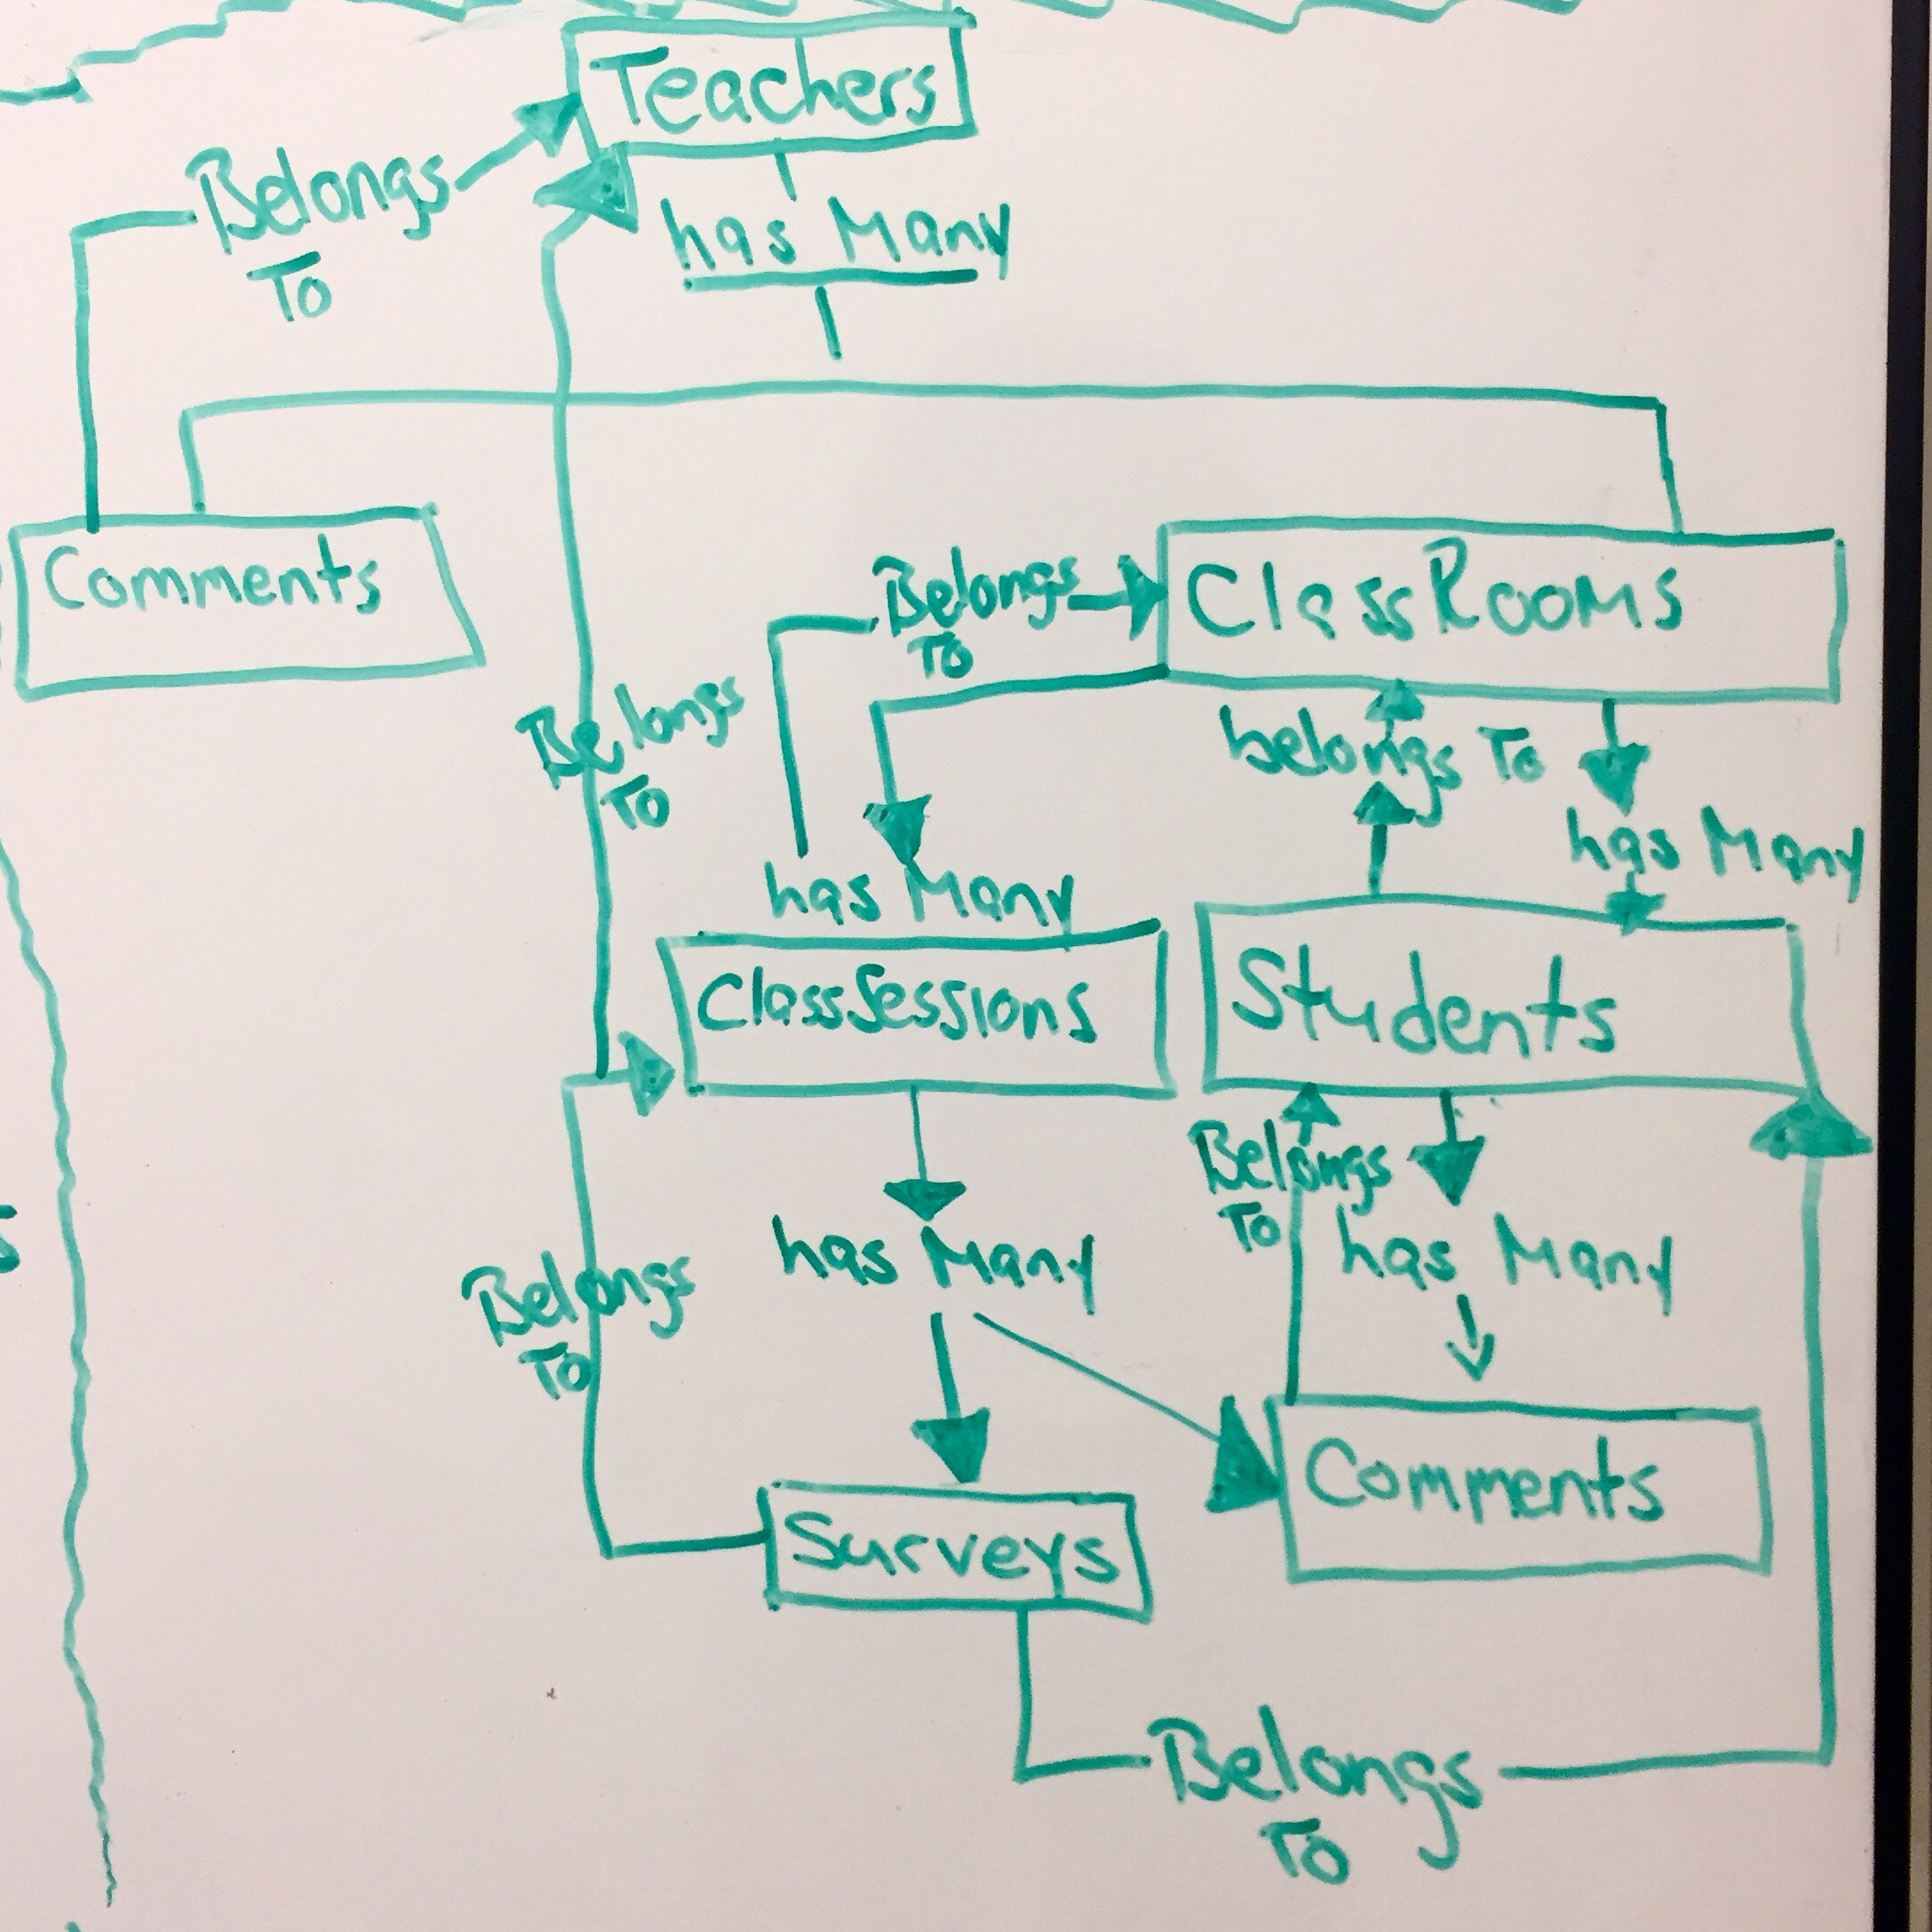 Teachers
Belongs
To
has Many
Comments
ClassRooms
Belongs
To
Belongs
To
belongs To
has Many
has Many
ClassSessions
Students
Belongs
To
has Many
has Many
Belongs
To
Comments
Surveys
Belongs
To